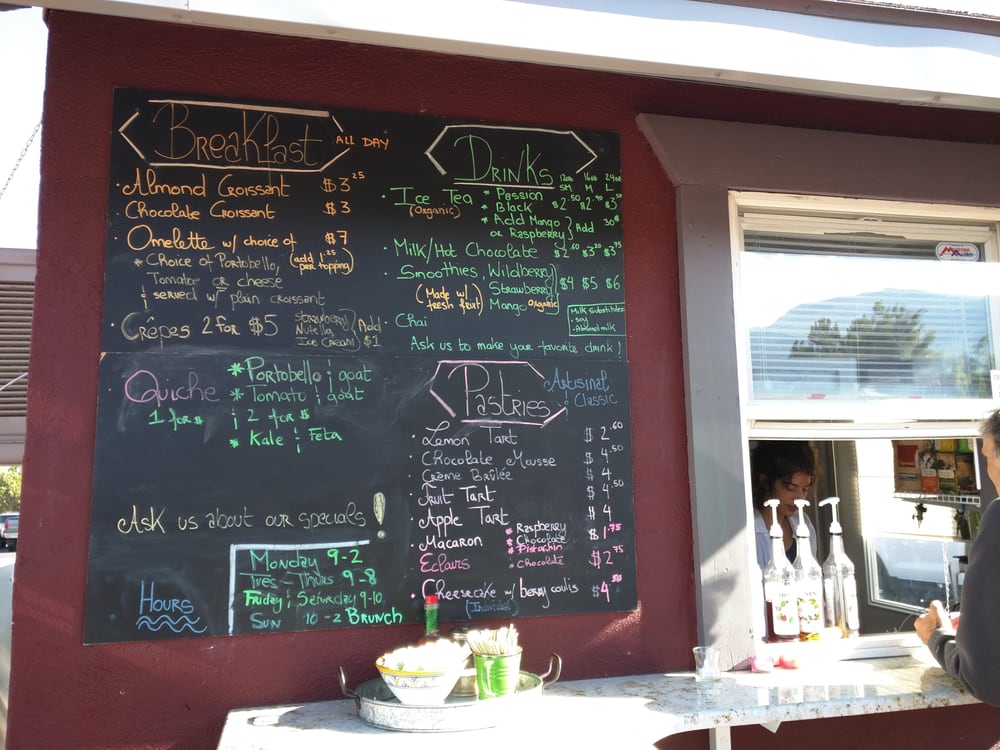 Breakfast ALL DAY
Almond Croissant $3.25
Chocolate Croissant $3
Omelette w/ choice of $7
* Choice of Portobello, (add 1.25 per topping)
Tomatoe or cheese
& served w/ plain croissant
Crêpes 2 for $5 Strawberry Nutella Ice Cream } Add $1
Quiche
1 for $
* Portobello & goat
* Tomato & goat
& 2 for $
* Kale & Feta
Ask us about our specials!
Hours
Monday 9-2
Tues - Thurs 9-8
Friday & Saturday 9-10
Sun 10-2 Brunch
Drinks
12oz 16oz 24oz
SM M L
Ice Tea * Passion
(Organic) * Black
* Add Mango
or Raspberry } Add 30¢
Milk/Hot Chocolate $2.60 $3.20 $3.75
Smoothies, Wildberry
Strawberry $4 $5 $6
(Made w/ fresh fruit) Mango organic
Milk substitutes
- soy
- Almond milk
Chai
Ask us to make your favorite drink!
Pastries Artisinal & Classic
Lemon Tart $2.60
Chocolate Mousse $4.50
Crème Brûlée $4
Fruit Tart $4.50
Apple Tart $4
Macaron * Raspberry $1.75
* Chocolate
* Pistachio
Eclairs - Chocolate $2.75
Cheesecake w/ berry coulis $4.50